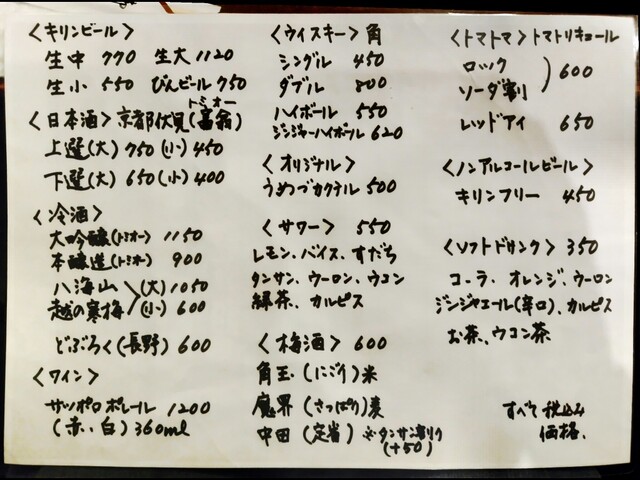 <キリンビール>
生中 770 生大 1120
生小 550 びんビール 750
トミオー
<日本酒> 京都伏見(富翁)
上選(大) 750 (小) 450
下選(大) 650 (小) 400
<冷酒>
大吟醸(トミオー) 1150
本醸造(トミオー) 900
八海山 (大) 1050
越の寒梅 (小) 600
どぶろく(長野) 600
<ワイン>
サッポロポレール 1200
(赤、白) 360ml
<ウィスキー> 角
シングル 450
ダブル 800
ハイボール 550
ジンジャーハイボール 620
<オリジナル>
うめづカクテル 500
<サワー> 550
レモン、バイス、すだち
タンサン、ウーロン、ウコン
緑茶、カルピス
<梅酒> 600
角玉 (にごり) 米
魔界 (さっぱり) 麦
中田 (定番) ※タンサン割り
(+50)
<トマトマ> トマトリキュール
ロック
ソーダ割 ) 600
レッドアイ 650
<ノンアルコールビール>
キリンフリー 450
<ソフトドリンク> 350
コーラ、オレンジ、ウーロン
ジンジャエール(辛口)、カルピス
お茶、ウコン茶
すべて税込み
価格、